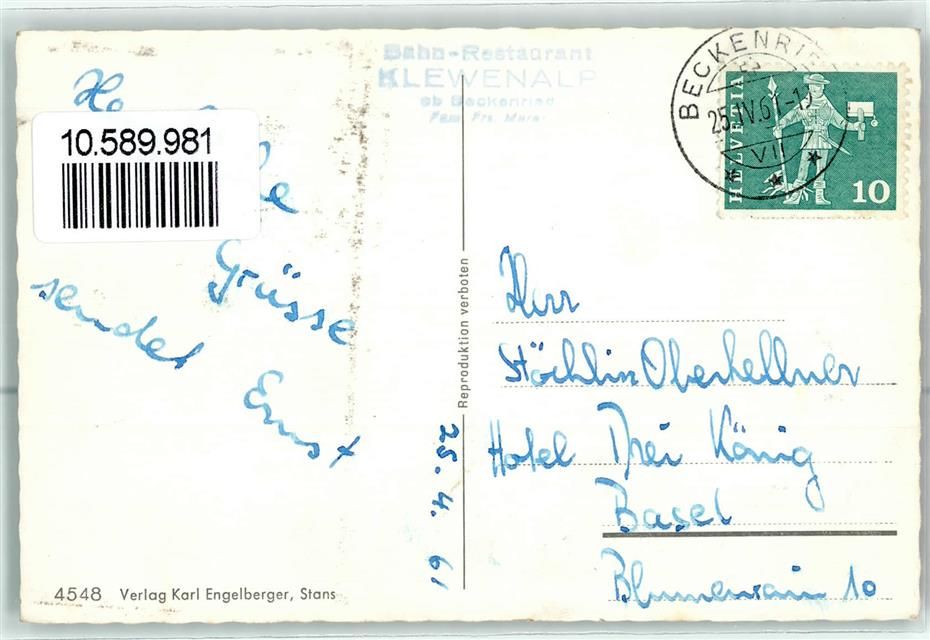 Bahn-Restaurant
KLEWENALP
ob Beckenried
Fam. Frs.
BECKENRIED
25.IV.61-1
VII
HELVETIA
10
10.589.981
Grüsse
sendet
Ernst
25. 4. 61
Reproduktion verboten
Herr
Stöchlin Oberkellner
Hotel Drei König
Basel
Blumenrain 10
4548 Verlag Karl Engelberger, Stans